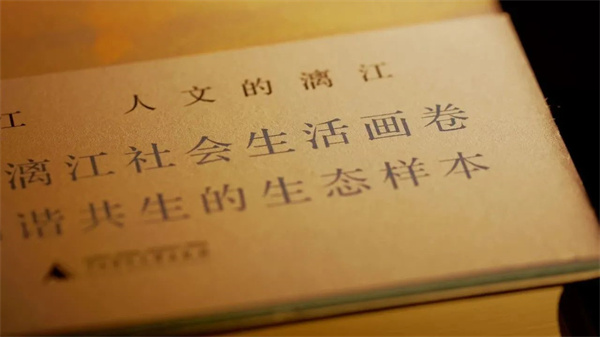 江 人文的漓江
漓江社会生活画卷
谐共生的生态样本